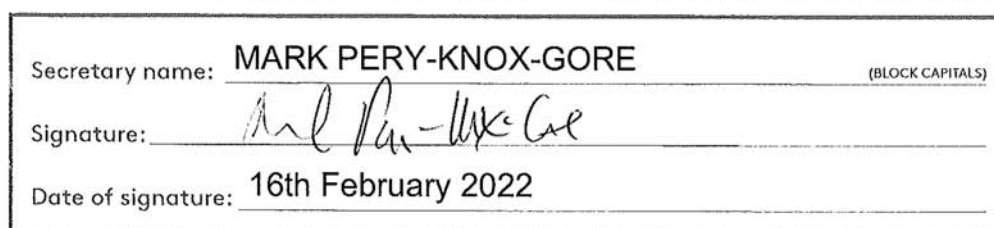 Secretary name: MARK PERY-KNOX-GORE (BLOCK CAPITALS)
Signature: Mark Pery-Knox-Gore
Date of signature: 16th February 2022